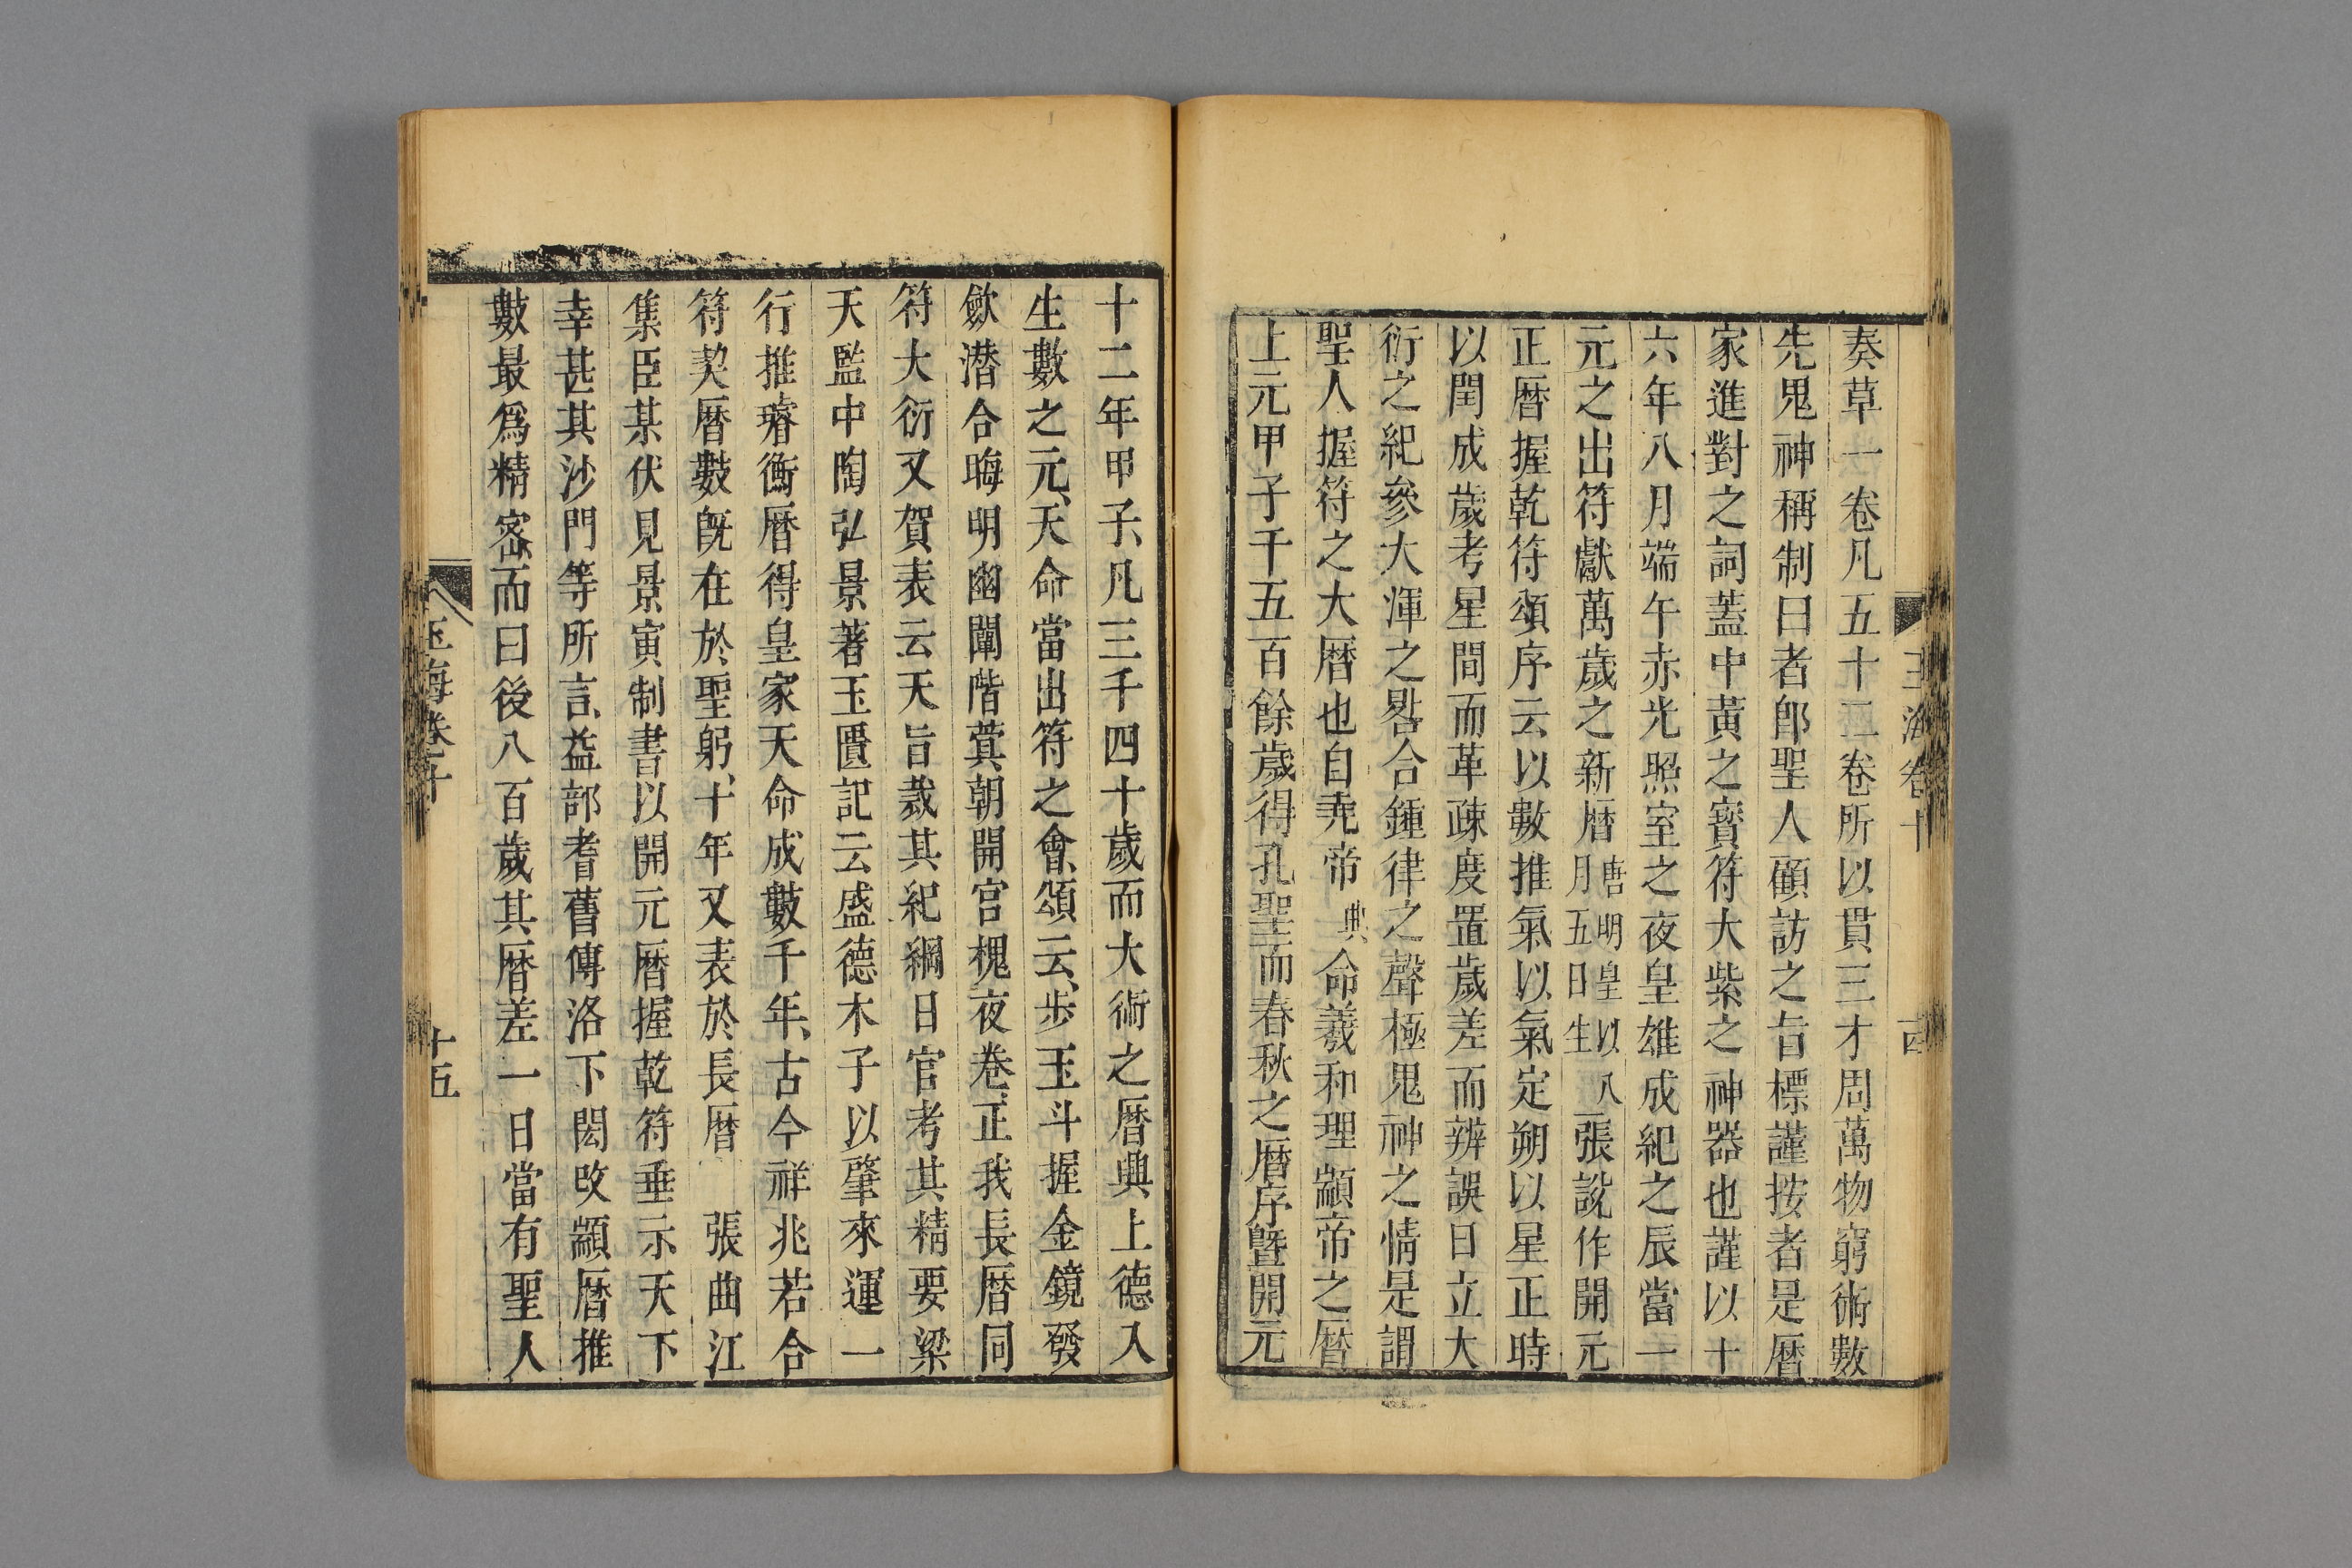 玉海卷十
十四
奏草一卷凡五十二卷所以貫三才周萬物窮術數
先鬼神稱制曰者卽聖人顧訪之旨標謹按者是曆
家進對之詞蓋中黃之寶符大紫之神器也謹以十
六年八月端午赤光照室之夜皇雄成紀之辰當一
元之出符獻萬歲之新曆唐明皇以八月五日生張說作開元
正曆握乾符頌序云以數推氣以氣定朔以星正時
以閏成歲考星間而革疎度置歲差而辨誤日立大
衍之紀參大渾之晷合鍾律之聲極鬼神之情是謂
聖人握符之大曆也自堯帝典命羲和理顓帝之曆
上元甲子千五百餘歲得孔聖而春秋之曆序曁開元
十二年甲子凡三千四十歲而大術之曆興上德入
生數之元天命當出符之會頌云步玉斗握金鏡發
歛潛合晦明幽闡階蓂朝開宫槐夜卷正我長曆同
符大衍又賀表云天旨裁其紀綱日官考其精要梁
天監中陶弘景著玉匱記云盛德木子以肇來運一
行推璿衡曆得皇家天命成數千年古今祥兆若合
符契曆數旣在於聖躬十年又表於長曆　張曲江
集臣某伏見景寅制書以開元曆握乾符垂示天下
幸甚其沙門等所言益部耆舊傳洛下閎改顓曆推
數最爲精密而曰後八百歲其曆差一日當有聖人
玉海卷十
十五